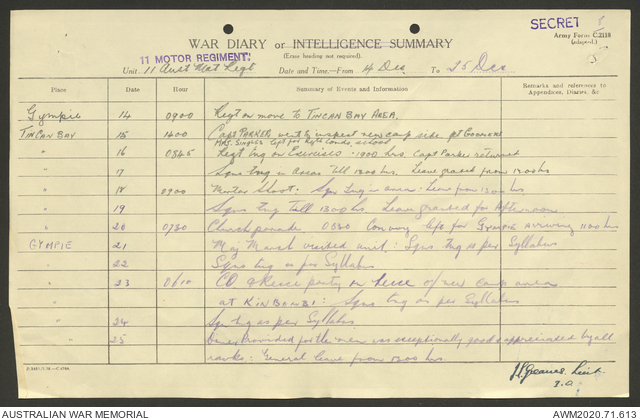 SECRET
Army Form C.2118
(adapted.)
WAR DIARY or INTELLIGENCE SUMMARY
(Erase heading not required).
11 MOTOR REGIMENT.
Unit 11 Aust Mot Regt Date and Time—From 14 Dec To 25 Dec
Place Date Hour Summary of Events and Information Remarks and references to Appendices, Diaries, &c
Gympie 14 0900 Regt on move to TINCAN BAY AREA.
TINCAN BAY 15 1400 Capt PARKER went to inspect new camp site at GOOMERI
left for Regtl Comds school
" 16 0845 Regt trg on Exercises. 1900 hrs. Capt Parker returned
" 17 Sqns trng in Areas till 1300 hrs. Leave granted from 1300 hrs
" 18 0900 Mortar Shoot. Sqn trng in area. Leave from 1300 hrs
" 19 Sqns trng till 1300 hrs. Leave granted for afternoon
" 20 0730 Church parade. 0830 Convoy left for GYMPIE arriving 1100 hrs
GYMPIE 21 Maj Marsh visited unit: Sqns trg as per Syllabus
" 22 Sqns trg as per Syllabus
" 23 0610 CO & Recce party on Recce of new camp area
at KINBOMBI: Sqns trng as per Syllabus
" 24 Sqn trg as per Syllabus
" 25 provided for the men was exceptionally good & appreciated by all
ranks: General leave from 1300 hrs.
Lieut.
I.O.
AUSTRALIAN WAR MEMORIAL
AWM2020.71.613